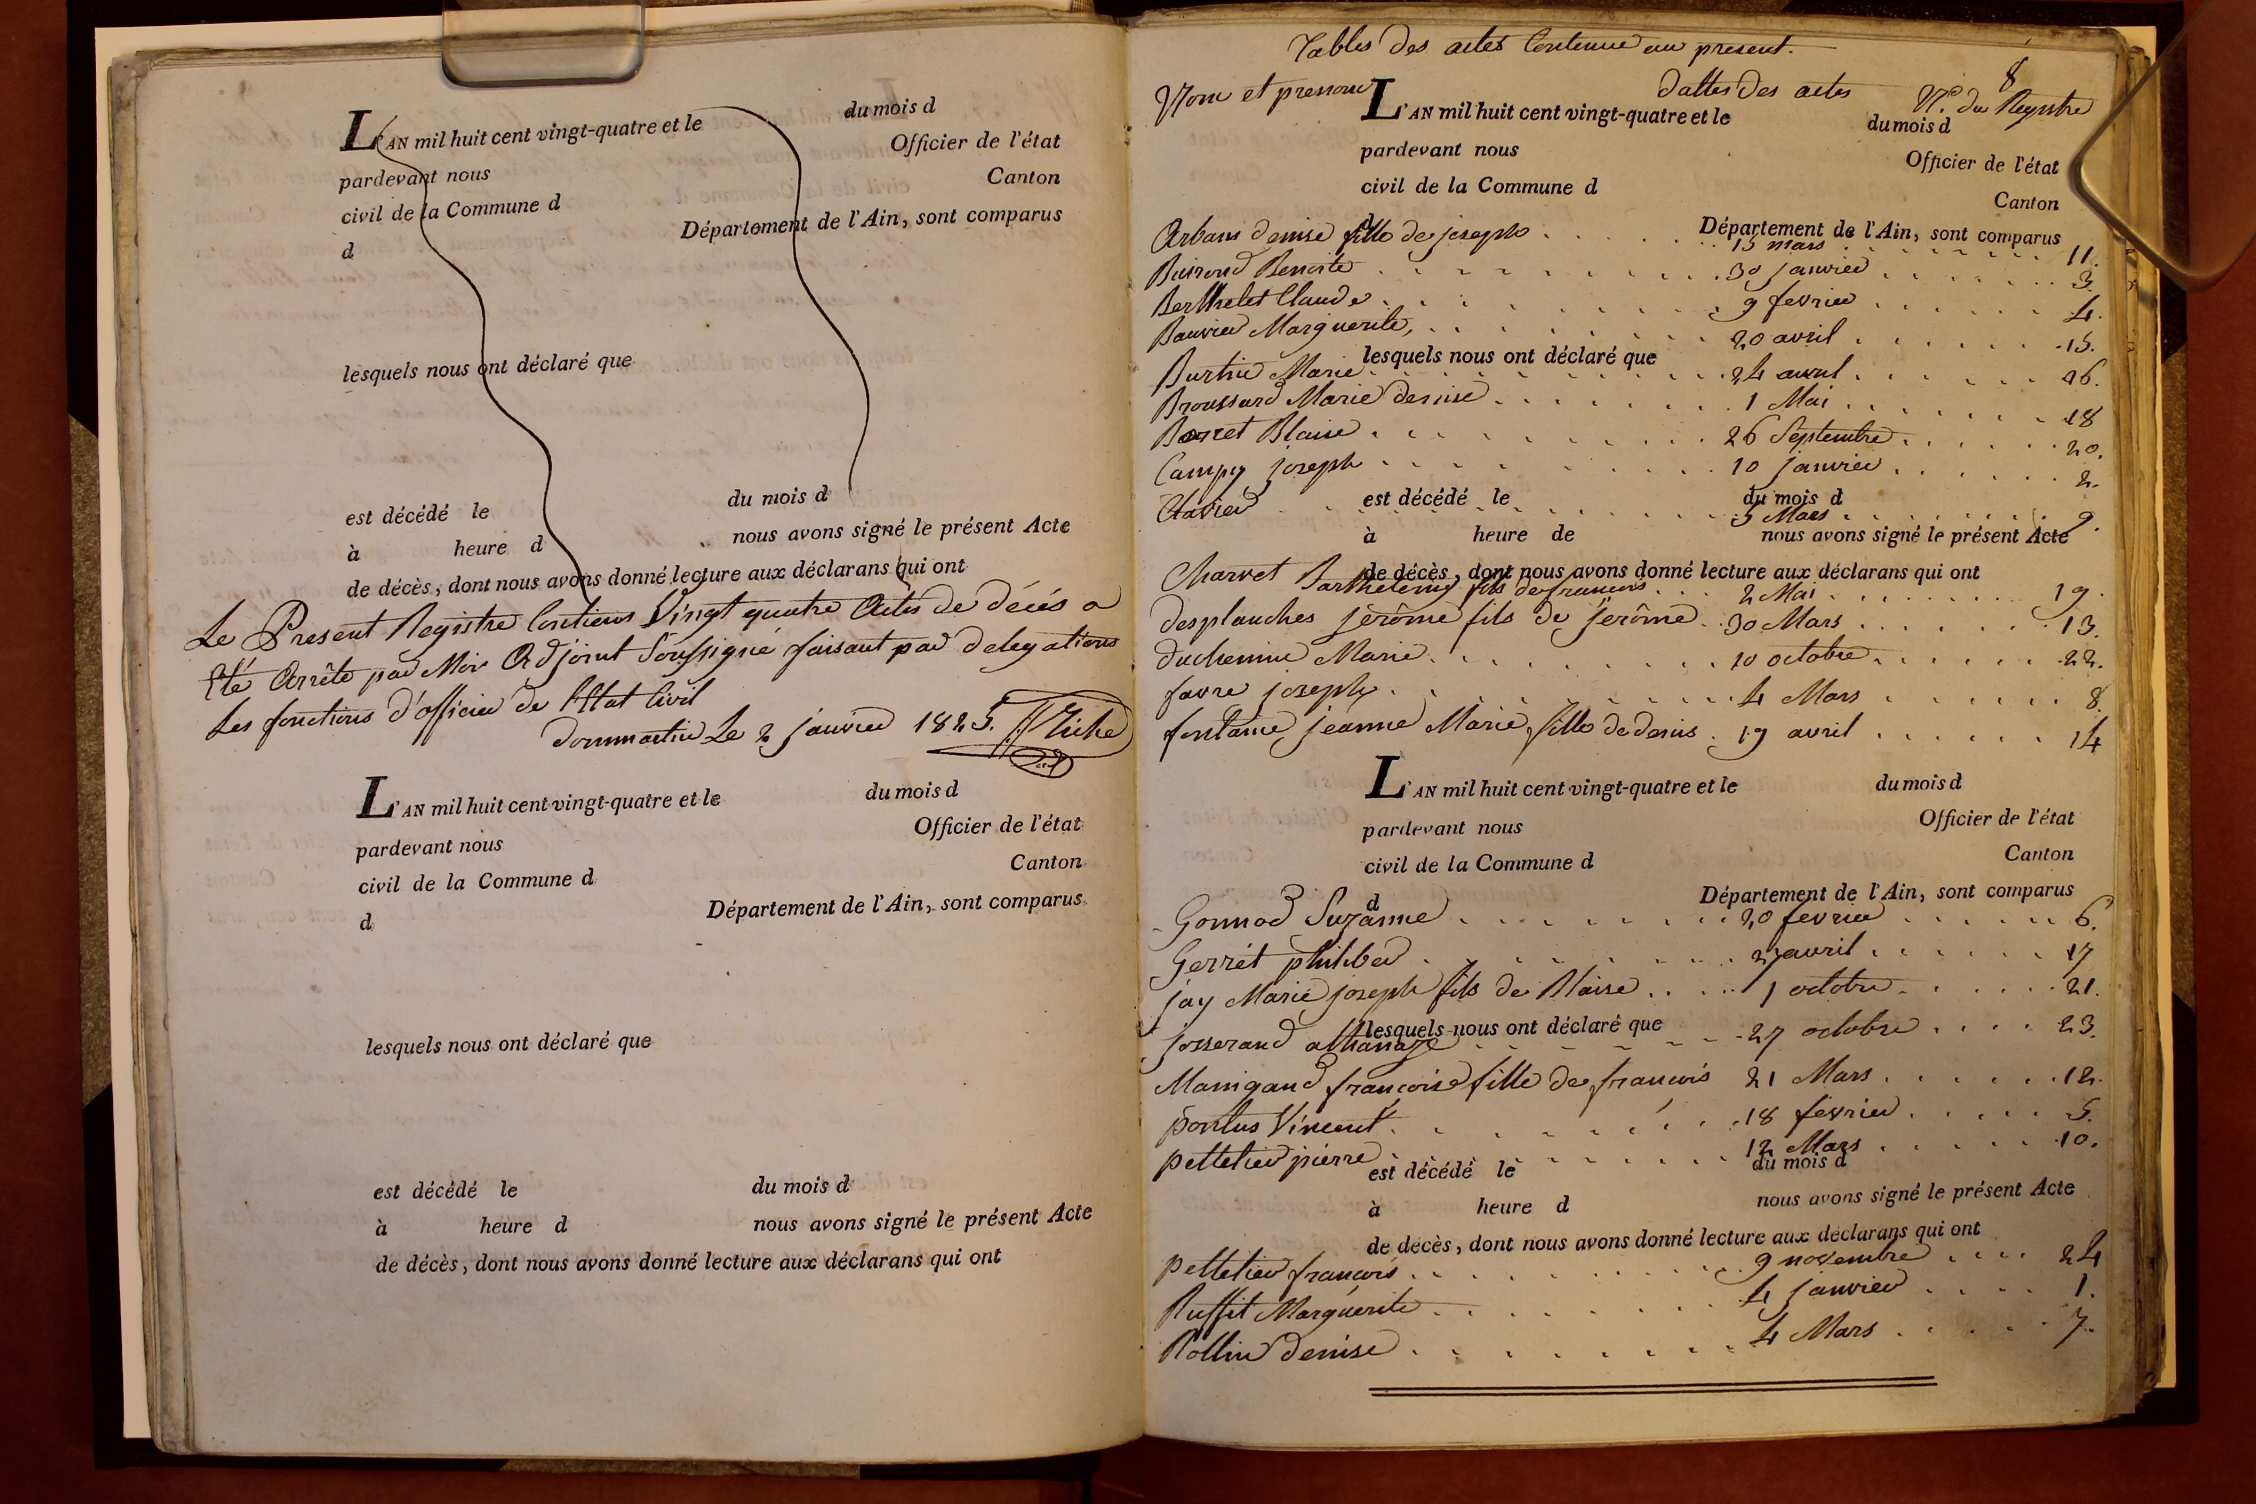 L'AN mil huit cent vingt-quatre et le du mois d
pardevant nous Officier de l'état
civil de la Commune d Canton
d Département de l'Ain, sont comparus
lesquels nous ont déclaré que
est décédé le du mois d
à heure d nous avons signé le présent Acte
de décès, dont nous avons donné lecture aux déclarans qui ont
Le Present Registre Contient Vingt quatre Actes de décés a
Eté Arrêté par Moi Adjoint Soussigné faisant par delegations
Les fonctions d'officier de l'Etat Civil
Dommartin Le 2 janvier 1825.
L'AN mil huit cent vingt-quatre et le du mois d
pardevant nous Officier de l'état
civil de la Commune d Canton
d Département de l'Ain, sont comparus
lesquels nous ont déclaré que
est décédé le du mois d
à heure d nous avons signé le présent Acte
de décès, dont nous avons donné lecture aux déclarans qui ont
Tables Des actes Contenue au present.
8
Nom et prenom Dattes Des actes N.º du Regystre
L'AN mil huit cent vingt-quatre et le du mois d
pardevant nous Officier de l'état
civil de la Commune d Canton
d Département de l'Ain, sont comparus
Arbans Denise fille de joseph 15 mars 11.
Buirond Benoite 30 janvier 3
Berthelet Claude 9 fevrier 4.
Bouvier Marguerite, 20 avril 15.
lesquels nous ont déclaré que
Burtin Marie 24 avril 16.
Broussard Marie denise 1 Mai 18
Borret Blaise 26 Septembre 20.
Campy joseph 10 janvier 2.
est décédé le du mois d
Clavier 5 Mars 9.
à heure de nous avons signé le présent Acte
de décès, dont nous avons donné lecture aux déclarans qui ont
Charvet Barthelemy fils de francois 2 Mai 19.
desplanches jerôme fils de jerôme 30 Mars 13.
duchemin Marie 10 octobre 22.
favre joseph 4 Mars 8.
fontaine jeanne Marie, fille de denis 19 avril 14
L'AN mil huit cent vingt-quatre et le du mois d
pardevant nous Officier de l'état
civil de la Commune d Canton
d Département de l'Ain, sont comparus
Gonnod Suzanne 20 fevrier 6.
Gerrét philiber avril 17
jay Marie joseph fils de Blaise 1 octobre 21.
lesquels nous ont déclaré que
josserand athanaze 27 octobre 23.
Manigand francoise fille de francois 21 Mars 12.
pontus Vincent 18 fevrier 5.
pelletier pierre 12 Mars 10.
est décédé le du mois d
à heure d nous avons signé le présent Acte
de décès, dont nous avons donné lecture aux déclarans qui ont
pelletier francois 9 novembre 24
Ruffit Marguerite 4 janvier 1.
Rollin denise 4 Mars 7.